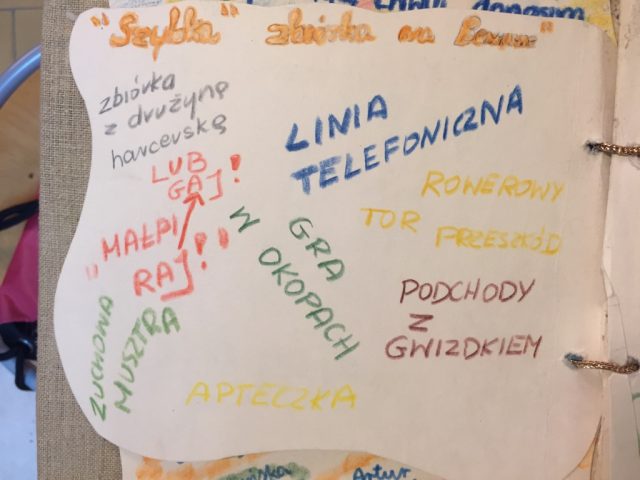 "Szybka" zbiórka na Bemowie"
zbiórka
z drużyną
harcerską
LUB
GAJ!
"MAŁPI
RAJ!"
LINIA
TELEFONICZNA
ROWEROWY
TOR PRZESZKÓD
GRA
W OKOPACH
PODCHODY
Z
GWIZDKIEM
ZUCHOWA
MUSZTRA
APTECZKA
Artur